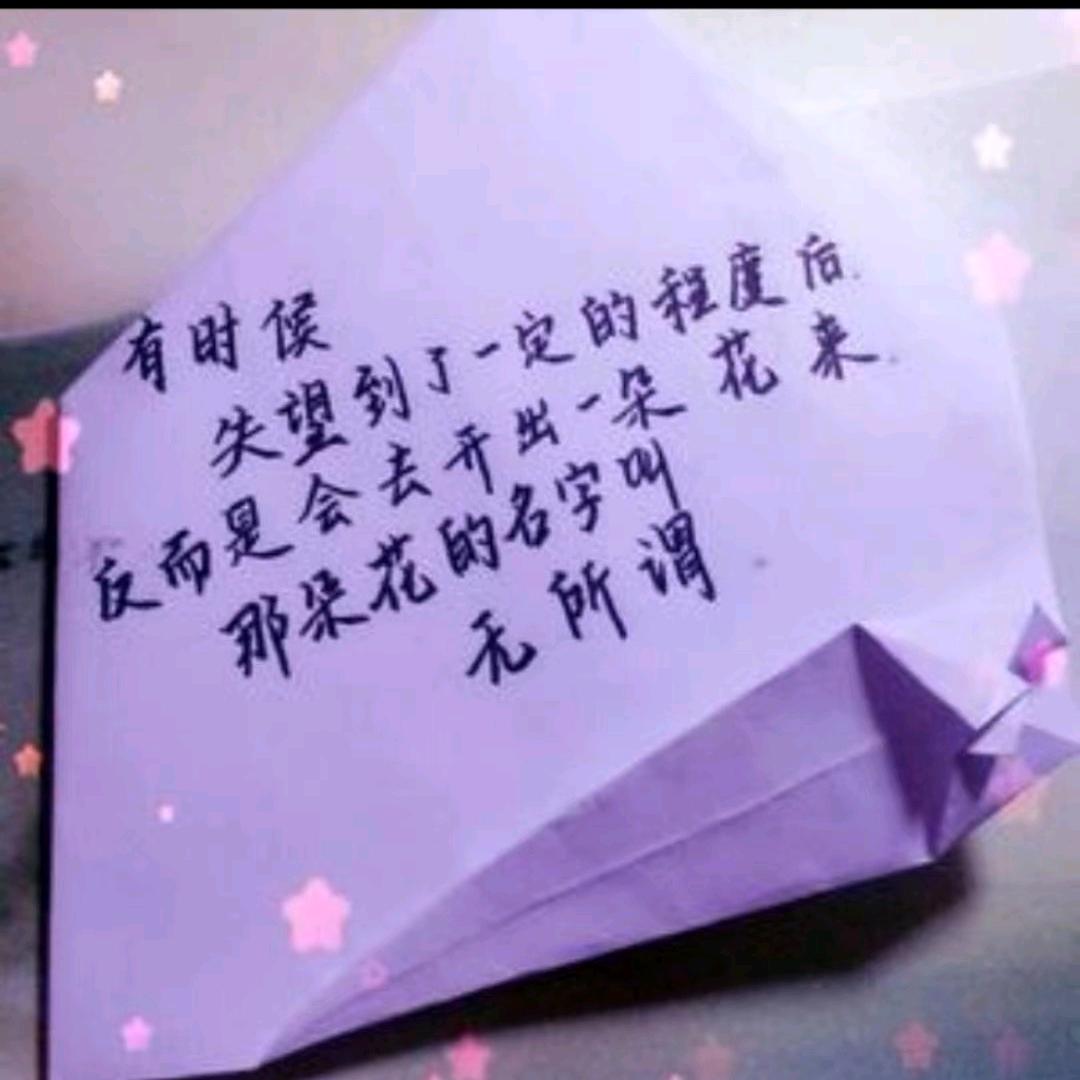 有时候
失望到了一定的程度后.
反而是会去开出一朵花来.
那朵花的名字叫
无所谓